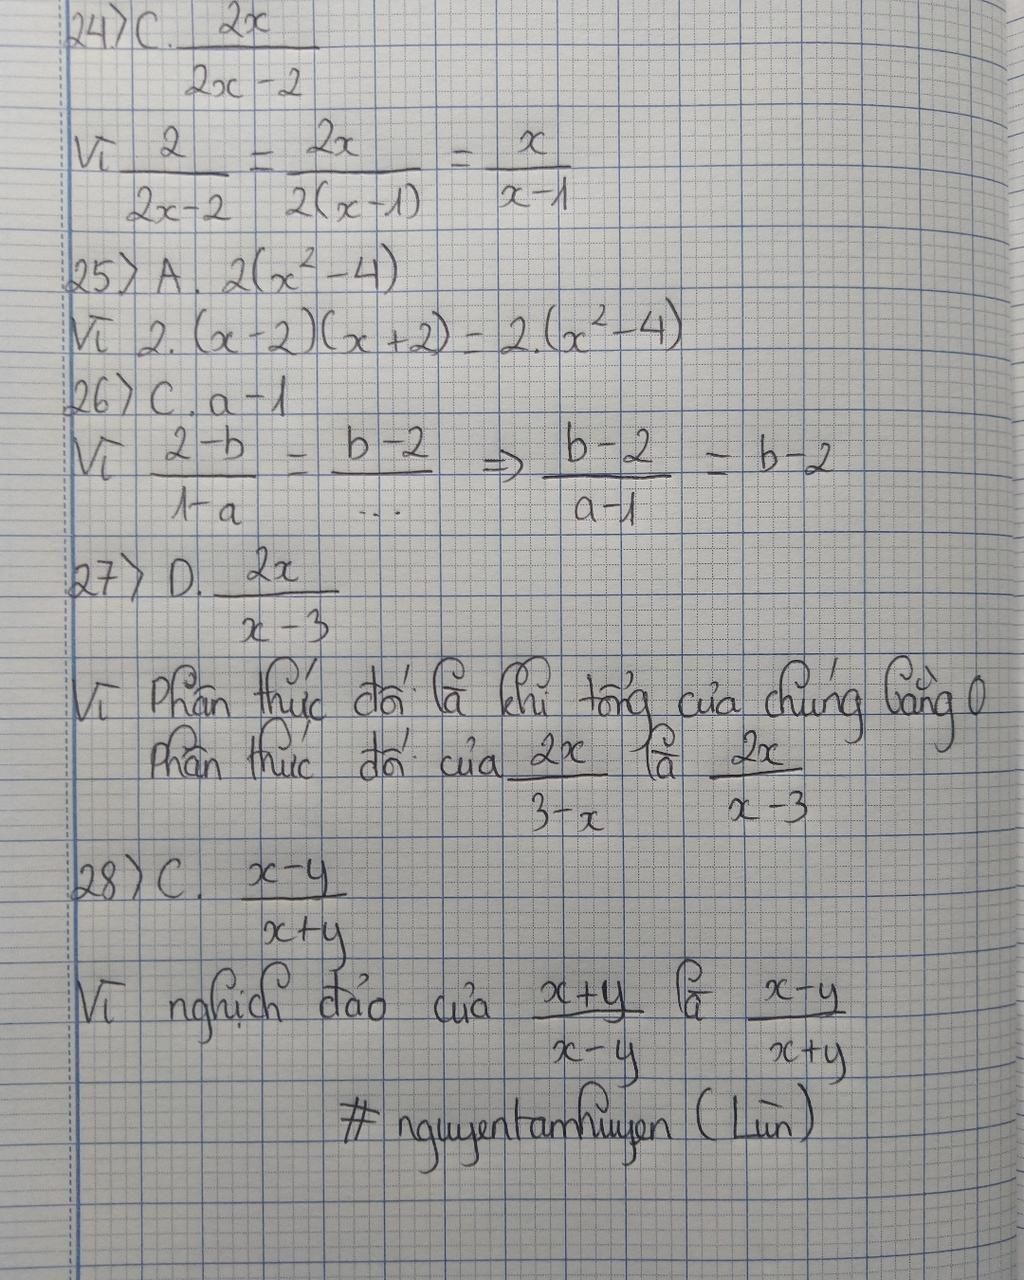 24) C. 2x / 2x - 2
Vì 2 / 2x - 2 = 2x / 2(x - 1) = x / x - 1
25) A. 2(x² - 4)
Vì 2. (x - 2)(x + 2) = 2.(x² - 4)
26) C. a - 1
Vì 2 - b / 1 - a = b - 2 / ... => b - 2 / a - 1 = b - 2
27) D. 2x / x - 3
Vì Phân thức đối là khi tổng của chúng bằng 0
Phân thức đối của 2x / 3 - x là 2x / x - 3
28) C. x - y / x + y
Vì nghịch đảo của x + y / x - y là x - y / x + y
# nguyentamhuyen (Lùn)